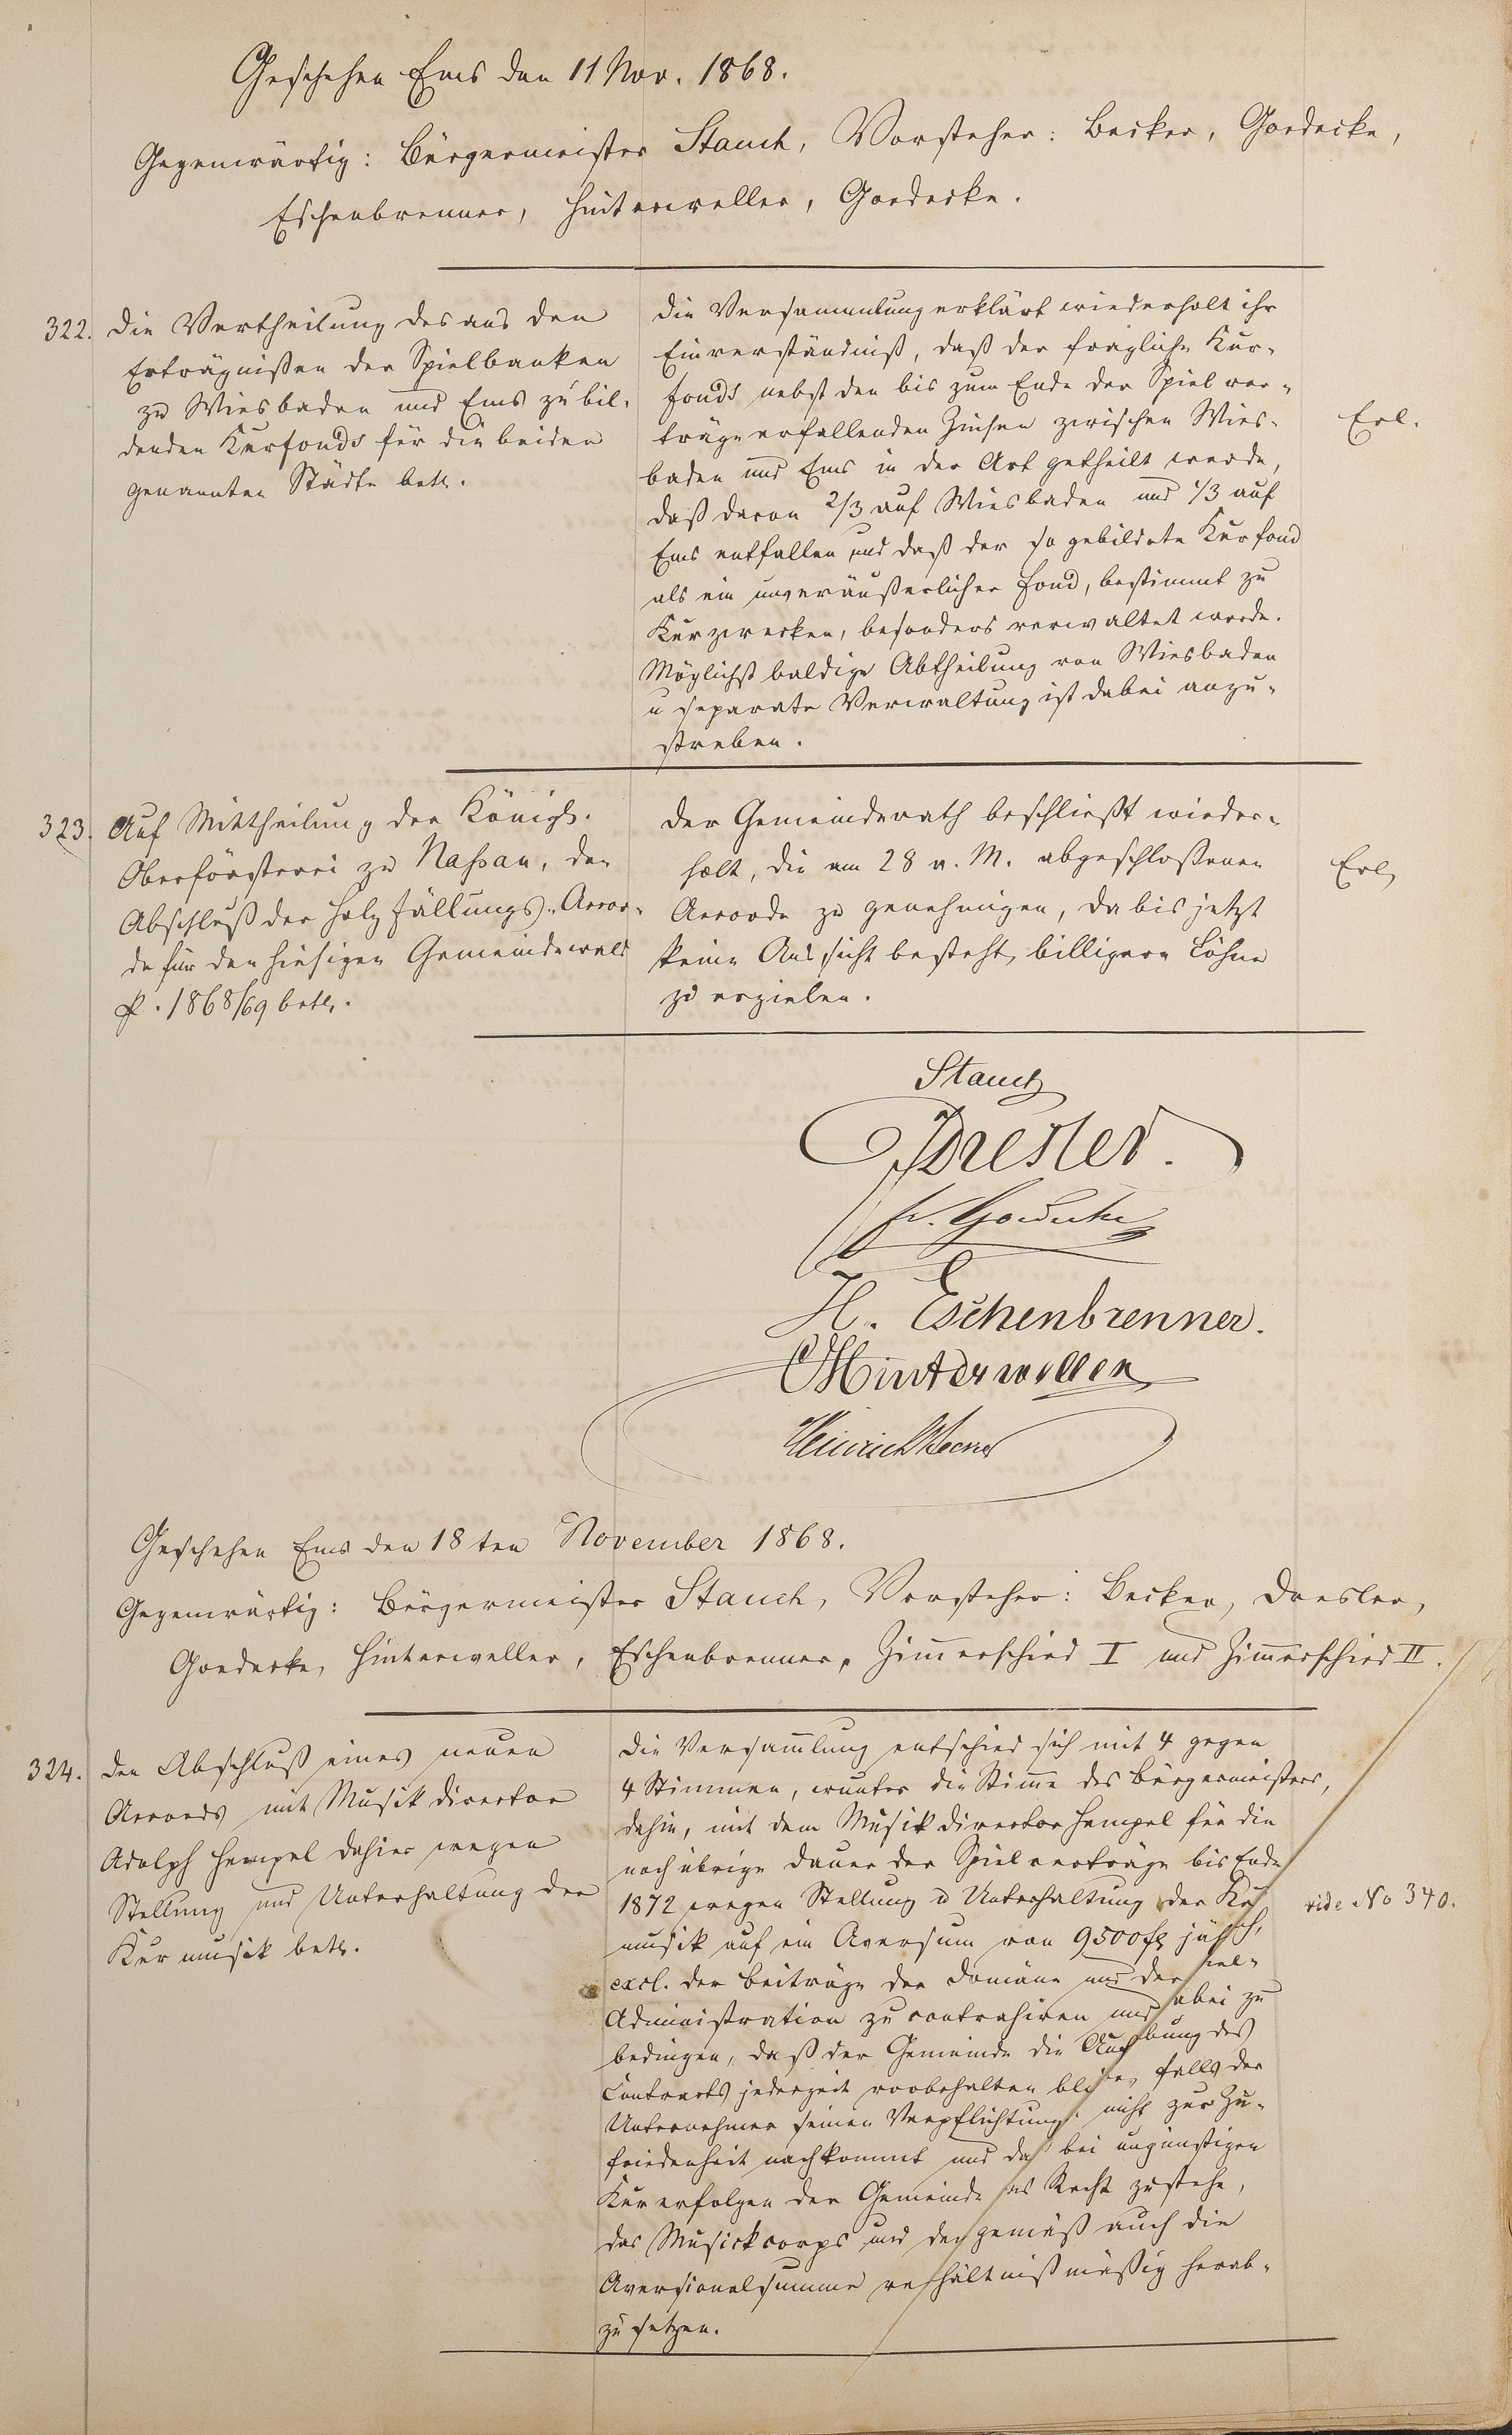 Geschehen Ems den 11 Nov. 1868.
Gegenwärtig: Bürgermeister Stauch, Vorsteher: Becker, Goedecke,
Eschenbrenner, Hinterweller, Goedecke.
322. Die Vertheilung des aus den
Erträgnißen der Spielbanken
zu Wiesbaden und Ems zu bil-
denden Kurfonds für die beiden
genannten Städte betr.
Die Versammlung erklärt wiederholt ihr
Einverständniß, daß der fragliche Kur-
fonds nebst den bis zum Ende der Spielver-
träge erfallenden Zinsen zwischen Wies-
baden und Ems in der Art getheilt werde,
daß davon 2/3 auf Wiesbaden und 1/3 auf
Ems entfallen und daß der so gebildete Kurfond
als ein unveräußerlicher Fond, bestimmt zu
Kurzwecken, besonders verwaltet werde.
Möglichst baldige Abtheilung von Wiesbaden
u separate Verwaltung ist dabei anzu-
streben.
Erl.
323. Auf Mittheilung der Königl.
Oberförsterei zu Naßau, den
Abschluß der Holzfällungs-Accor-
de für den hiesigen Gemeindewald
p. 1868/69 betr.
Der Gemeinderath beschließt wieder-
holt, die am 28 v. M. abgeschloßenen
Accorde zu genehmigen, da bis jetzt
keine Aussicht besteht, billigere Löhne
zu erzielen.
Erl.
Stauch
Dresler.
Fr. Goedecke
H. Eschenbrenner.
Hinterweller
Heinrich Becker
Geschehen Ems den 18ten November 1868.
Gegenwärtig: Bürgermeister Stauch, Vorsteher: Becker, Dresler,
Goedecke, Hinterweller, Eschenbrenner, Zimerschied I und Zimerschied II.
324. Den Abschluß eines neuen
Accords mit Musikdirector
Adolph Hempel dahier wegen
Stellung und Unterhaltung der
Kurmusik betr.
Die Versamlung entschied sich mit 4 gegen
4 Stimmen, wunter die Stime des Bürgermeisters,
dahin, mit dem Musikdirector Hempel für die
noch übrige Dauer der Spielverträge bis Ende
1872 wegen Stellung u Unterhaltung der Ku
musik auf ein Aversum von 9500 fl jährl,
excl. der Beiträge der Domäne und der iel-
Administration zu contrahiren und abei zu
bedingen, daß der Gemeinde die Auf bung des
Contracts jederzeit vorbehalten bli e, falls der
Unternehmer seinen Verpflichtung nicht zur Zu-
friedenheit nachkommt und daß bei ungünstigen
Kurerfolgen der Gemeinde as Recht zustehe,
das Musickcorps und de gemäß auch die
Aversionalsumme ve hältnißmäßig herab-
zusetzen.
vide No 340.